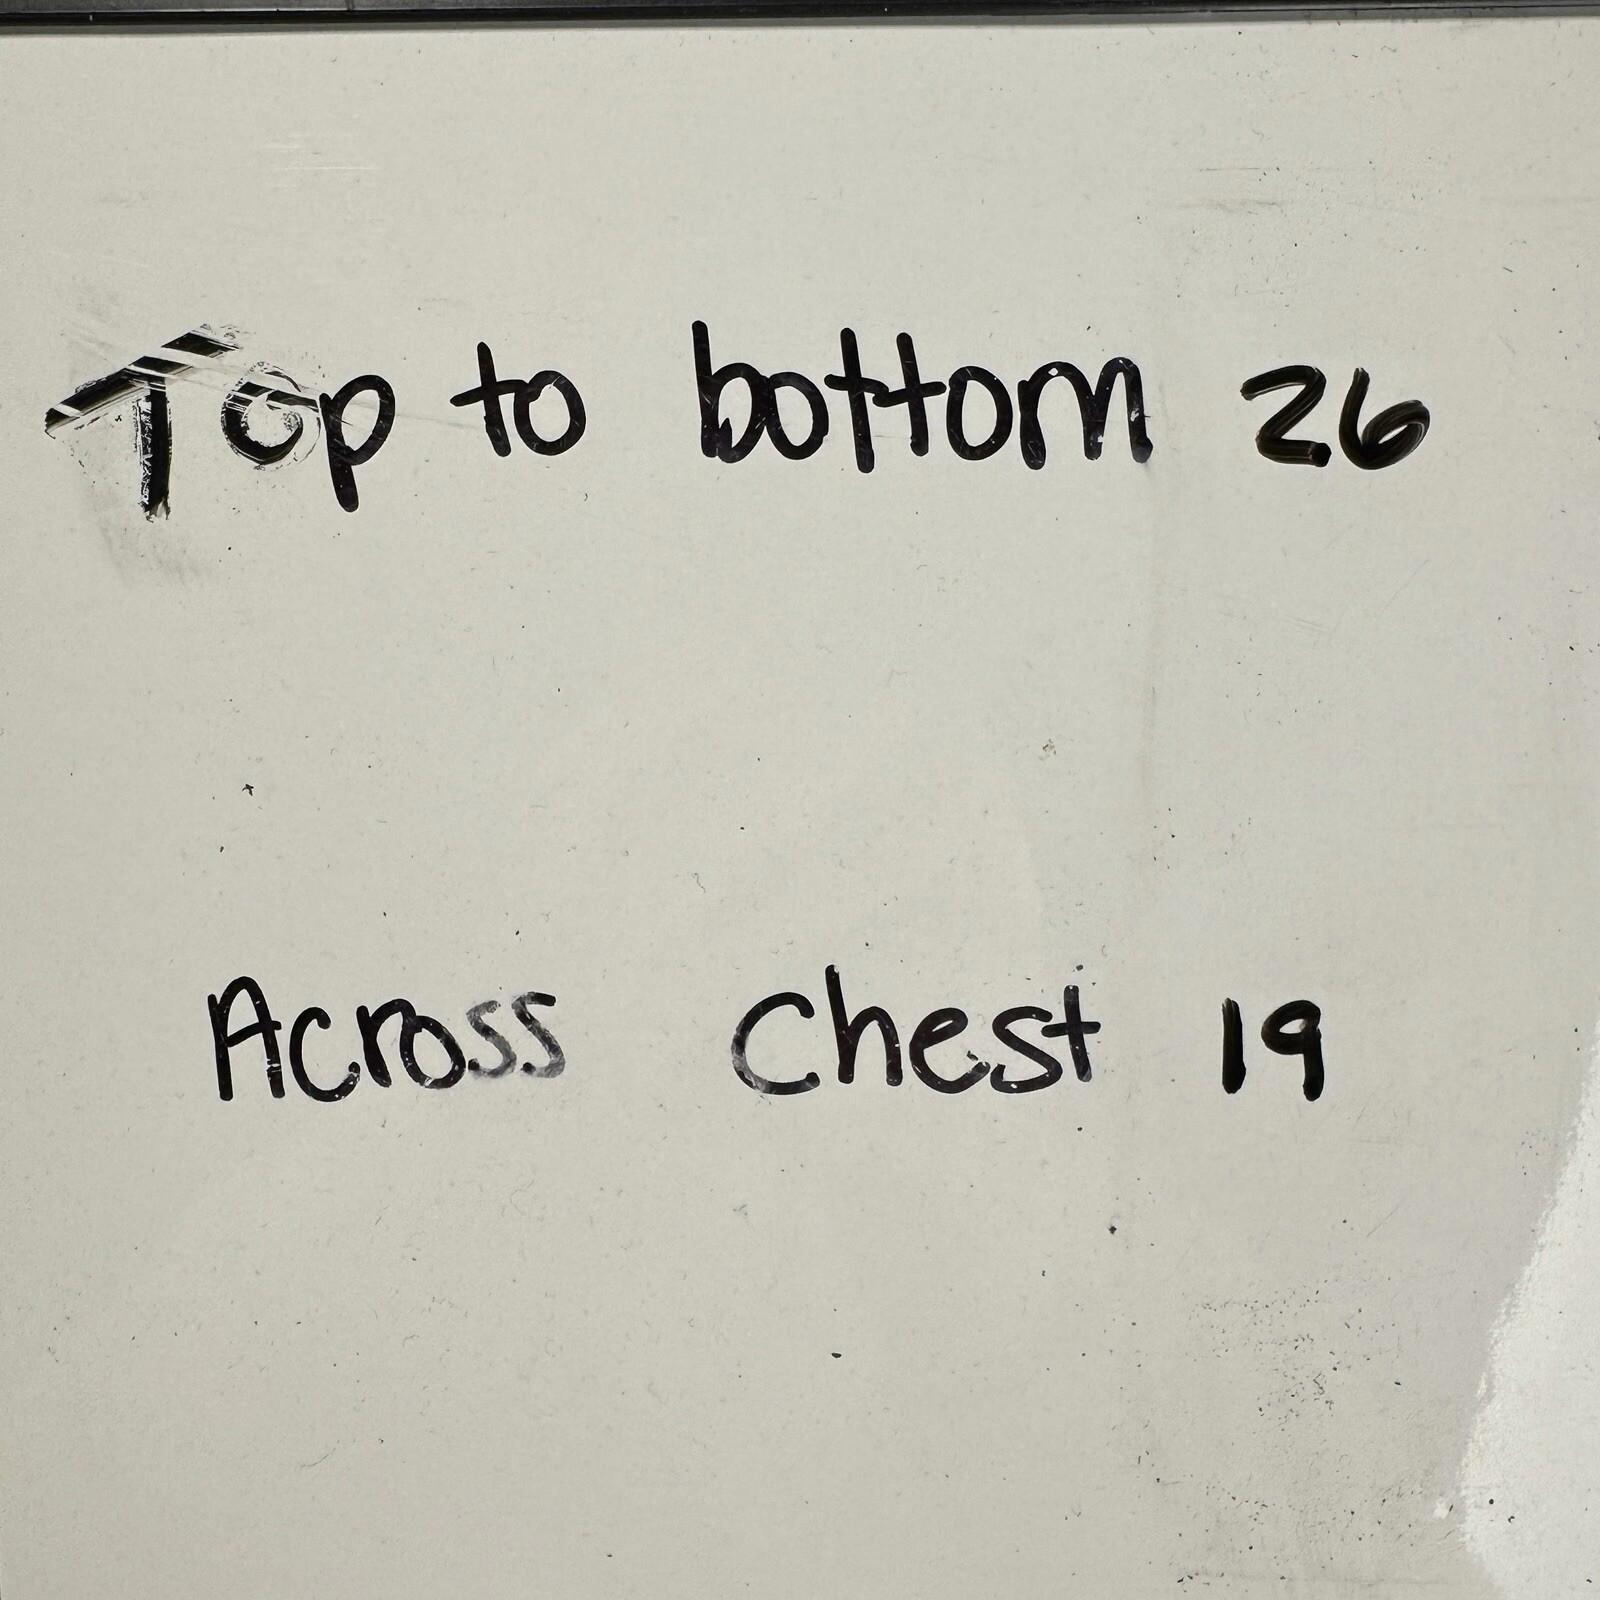 Top to bottom 26
Across Chest 19